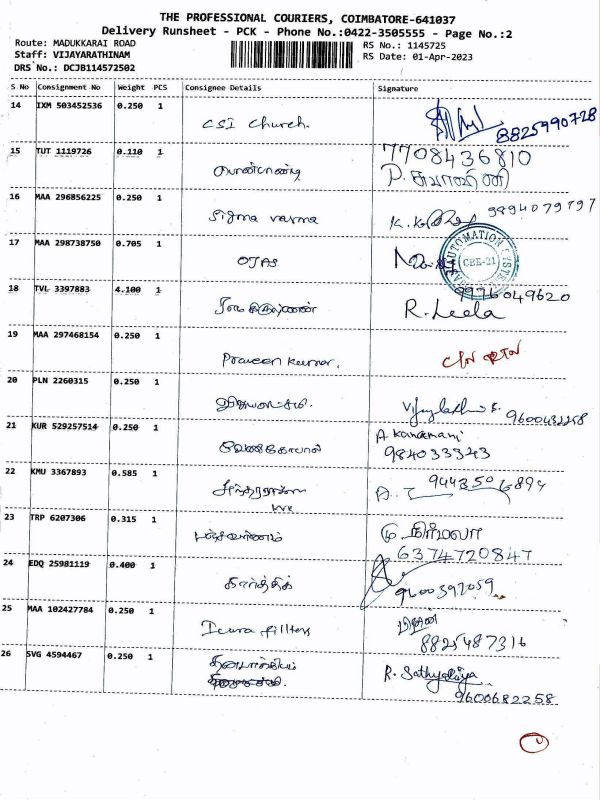 THE PROFESSIONAL COURIERS, COIMBATORE-641037
Delivery Runsheet - PCK - Phone No.:0422-3505555 - Page No.:2
Route: MADUKKARAI ROAD RS No.: 1145725
Staff: VIJAYARATHINAM RS Date: 01-Apr-2023
DRS No.: DCJB114572502
S No Consignment No Weight PCS Consignee Details Signature
14 IXM 503452536 0.250 1 CSI Church. 8825990728
15 TUT 1119726 0.110 1 7708436810
16 MAA 296856225 0.250 1 Sigma varma 9894079797
17 MAA 298738750 0.705 1 OJAS CBE-21
18 TVL 3397883 4.100 1 9976049620
R. Leela
19 MAA 297468154 0.250 1 Praveen kumar. C/N RTN
20 PLN 2260315 0.250 1 9600432258
21 KUR 529257514 0.250 1 வேணுகோபால் A. Kanamani
984033343
22 KMU 3367893 0.585 1
23 TRP 6207306 0.315 1 மு நிர்மலா
6374720847
24 EDQ 25981119 0.400 1 கார்த்திக் 9600392059
25 MAA 102427784 0.250 1 8825487316
26 SVG 4594467 0.250 1 R. Sathyapriya
9600682258